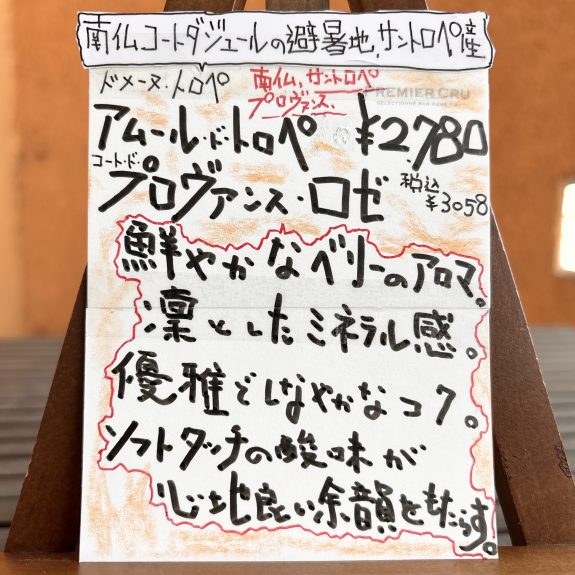 南仏コートダジュールの避暑地,サントロペ産
ドメーヌ・トロペ
南仏,サントロペ
プロヴァンス.
PREMIER CRU
アムール・ド・トロペ ¥2,780
コート・ド・
プロヴァンス・ロゼ
税込
¥3058
鮮やかなベリーのアロマ。
凛としたミネラル感。
優雅でしなやかなコク。
ソフトタッチの酸味が
心地良い余韻をもたらす。